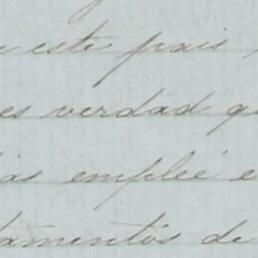 este pais
es verdad q
ias empleé e
tamentos de